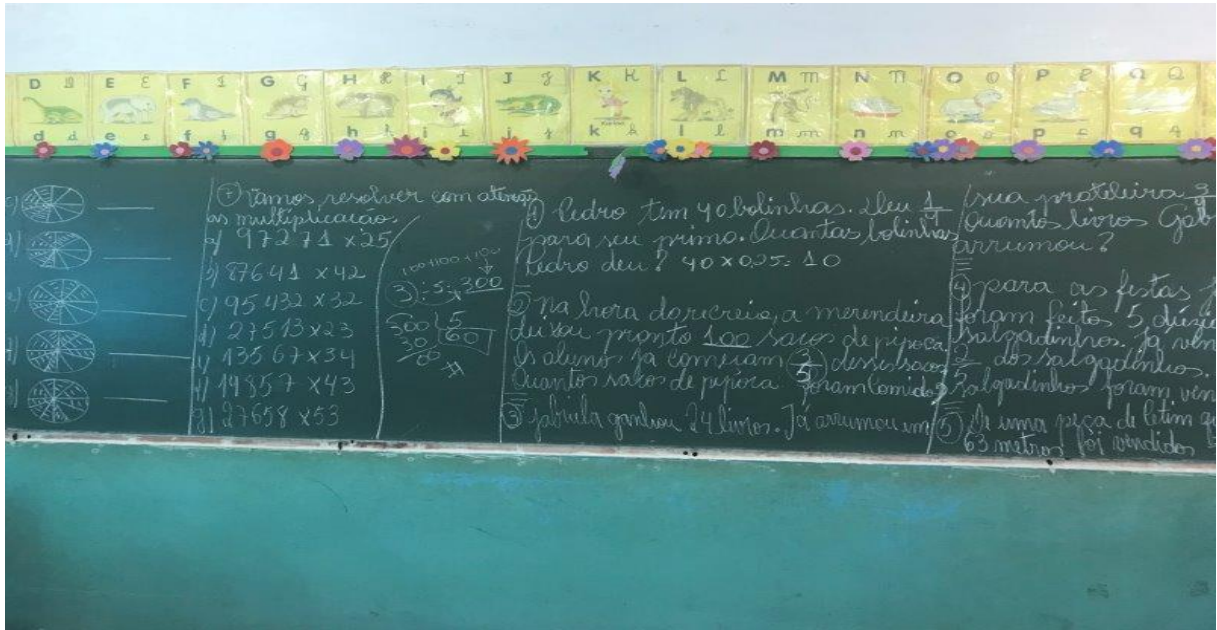 D E F G H I J K L M N O P Q
d e f g h i j k l m n o p q
c)
d)
e)
g)
7) Vamos resolver com atenção
as multiplicação.
a) 97271 x 25
b) 87641 x 42
c) 95432 x 32
d) 27513 x 23
e) 13567 x 34
f) 19857 x 43
g) 27658 x 53
100+100+100
3 : 5 = 300
300 5
30 60
00
1) Pedro tem 40 bolinhas. Deu 1/4
para seu primo. Quantas bolinhas
Pedro deu? 40 x 0,25 = 10
2) Na hora do recreio, a merendeira
deixou pronto 100 sacos de pipoca.
Os aluno já comeram 3/5 desses sacos
Quantos sacos de pipoca foram comido?
3) Gabriela ganhou 24 livros. Já arrumou em
sua prateleira
Quantos livros Gab
arrumou?
4) para as festas
foram feito 5 dúzi
salgadinhos. Já ven
2/5 dos salgadinhos.
salgadinhos foram ven
5) De uma peça de cetim
63 metros foi vendidos